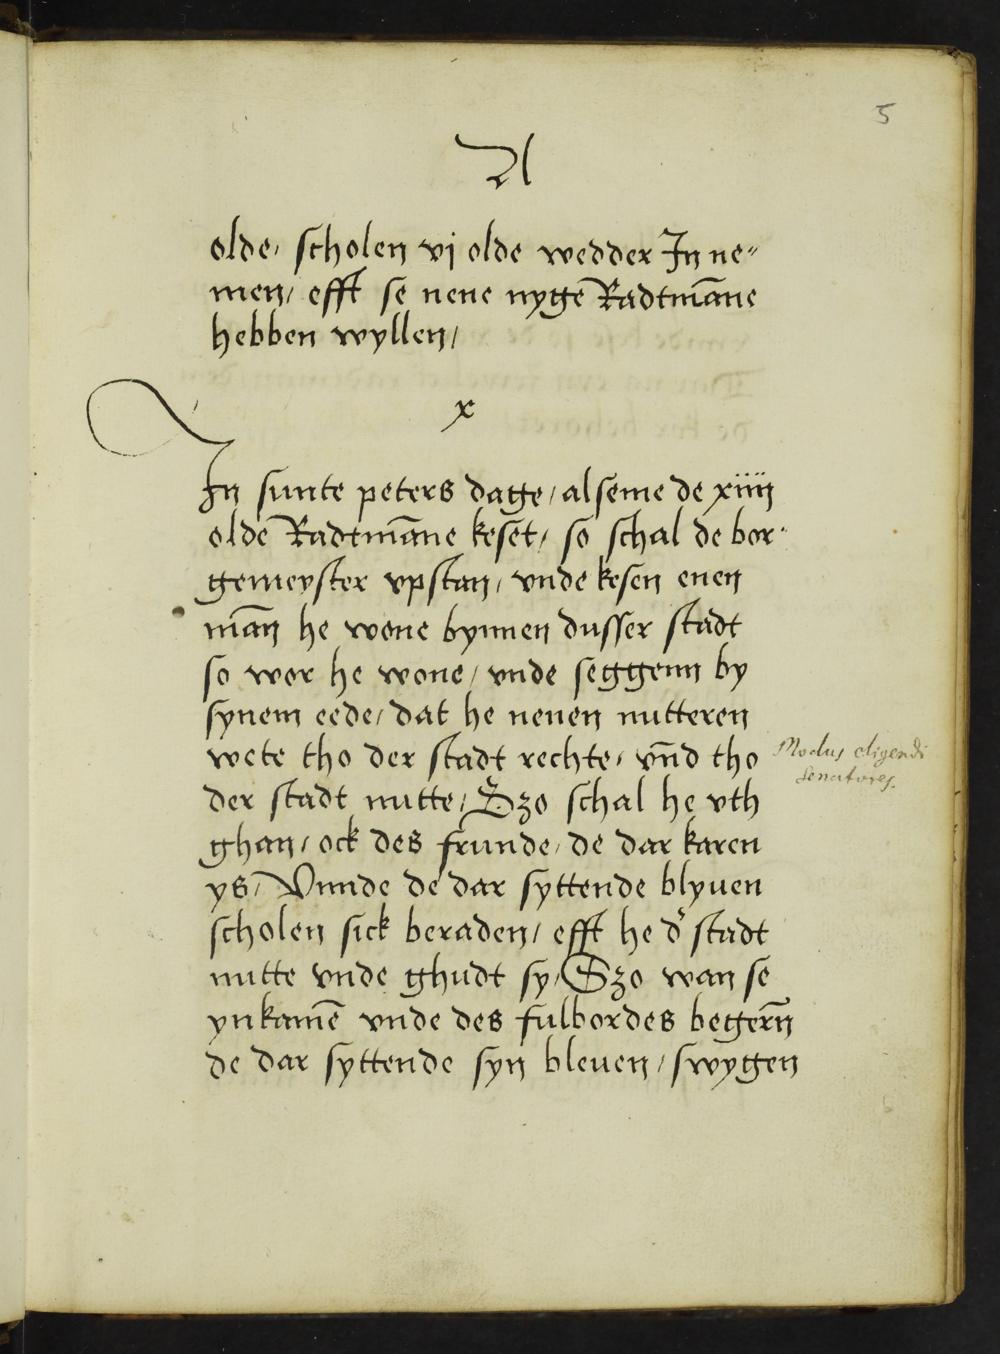 5
A
olde, scholen vj olde wedder In ne"
men, efft se nene nyge Radtmāne
hebben wyllen,
x
In sunte peters dage, alseme de xiiij
olde Radtmāne keset, so schal de bor"
gemeyster vpstan, vnde kesen enen
mān he wone bynnen dusser stadt
so wor he wone, vnde seggenn by
synem eede, dat he nenen nutteren
wete tho der stadt rechte, vn̄d tho
der stadt nutte, Szo schal he vth
ghan, ock des frunde, de dar karen
ys, Vnnde de dar syttende blyuen
scholen sick beraden, efft he d' stadt
nutte vnde ghudt sy, Szo wan se
ynkamē vnde des fulbordes begern̄
de dar syttende syn bleuen, swygen
Modus eligendi
Senatores.